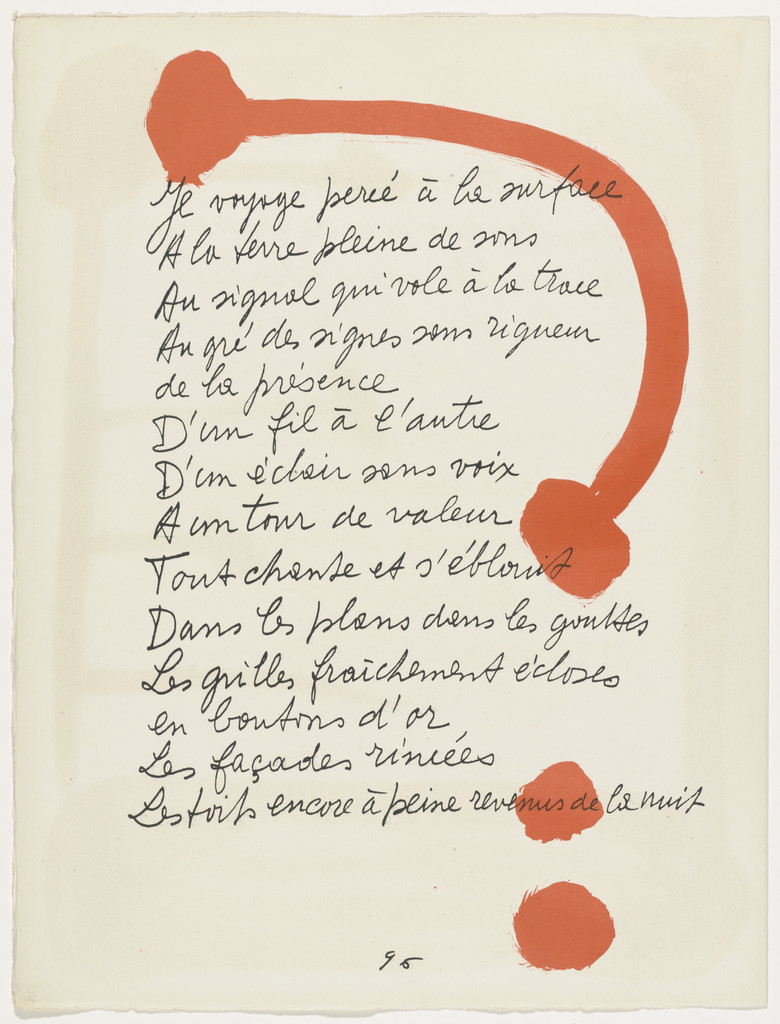 Je voyage percé à la surface
A la terre pleine de sons
Au signal qui vole à la trace
Au gré des signes sans rigueur
de la présence
D'un fil à l'autre
D'un éclair sans voix
A un tour de valeur
Tout chante et s'éblouit
Dans les plans dans les gouttes
Les grilles fraîchement écloses
en boutons d'or
Les façades rincées
Les toits encore à peine revenus de la nuit
96